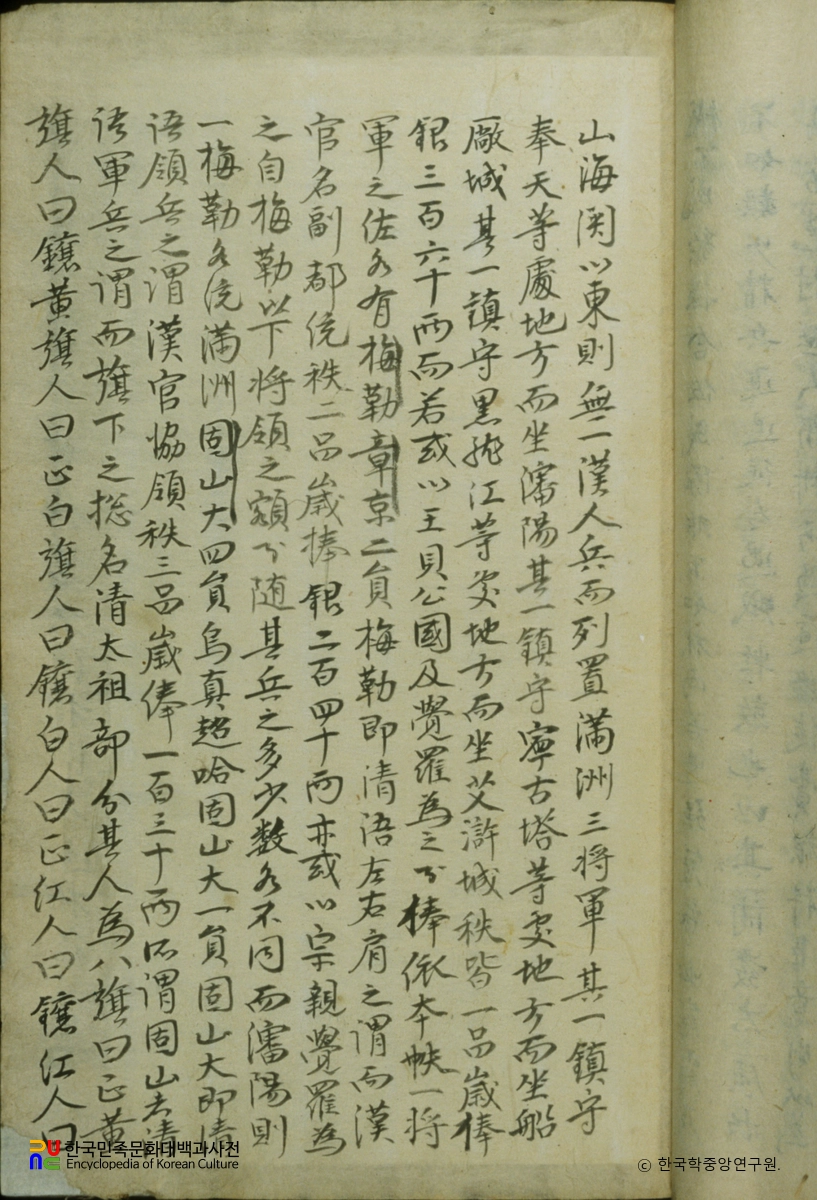 山海関以東則無一漢人兵而列置滿洲三將軍其一鎮守
奉天等處地方而坐瀋陽其一鎮守寧古塔等處地方而坐船
廠城其一鎮守黑龍江等處地方而坐艾滸城秩皆一品歲俸
銀三百六十兩而若或以王貝公國及覺羅為之了捧依本帙一將
軍之佐各有梅勒章京二員梅勒即清語左右肩之謂而漢
官名副都統秩二品歲捧銀二百四十兩亦或以宗親覺羅為
之自梅勒以下將領之額了随其兵之多少数各不同而瀋陽則
一梅勒各統滿洲固山大四員烏真超哈固山大一員固山大即清
語領兵之謂漢官協領秩三品歲俸一百三十兩所謂固山者清
語軍兵之謂而旗下之捴名清太祖部分其人為八旗曰正黃
旗人曰鑲黃旗人曰正白旗人曰鑲白人曰正红人曰鑲红人曰
한국민족문화대백과사전
Encyclopedia of Korean Culture
ⓒ 한국학중앙연구원.